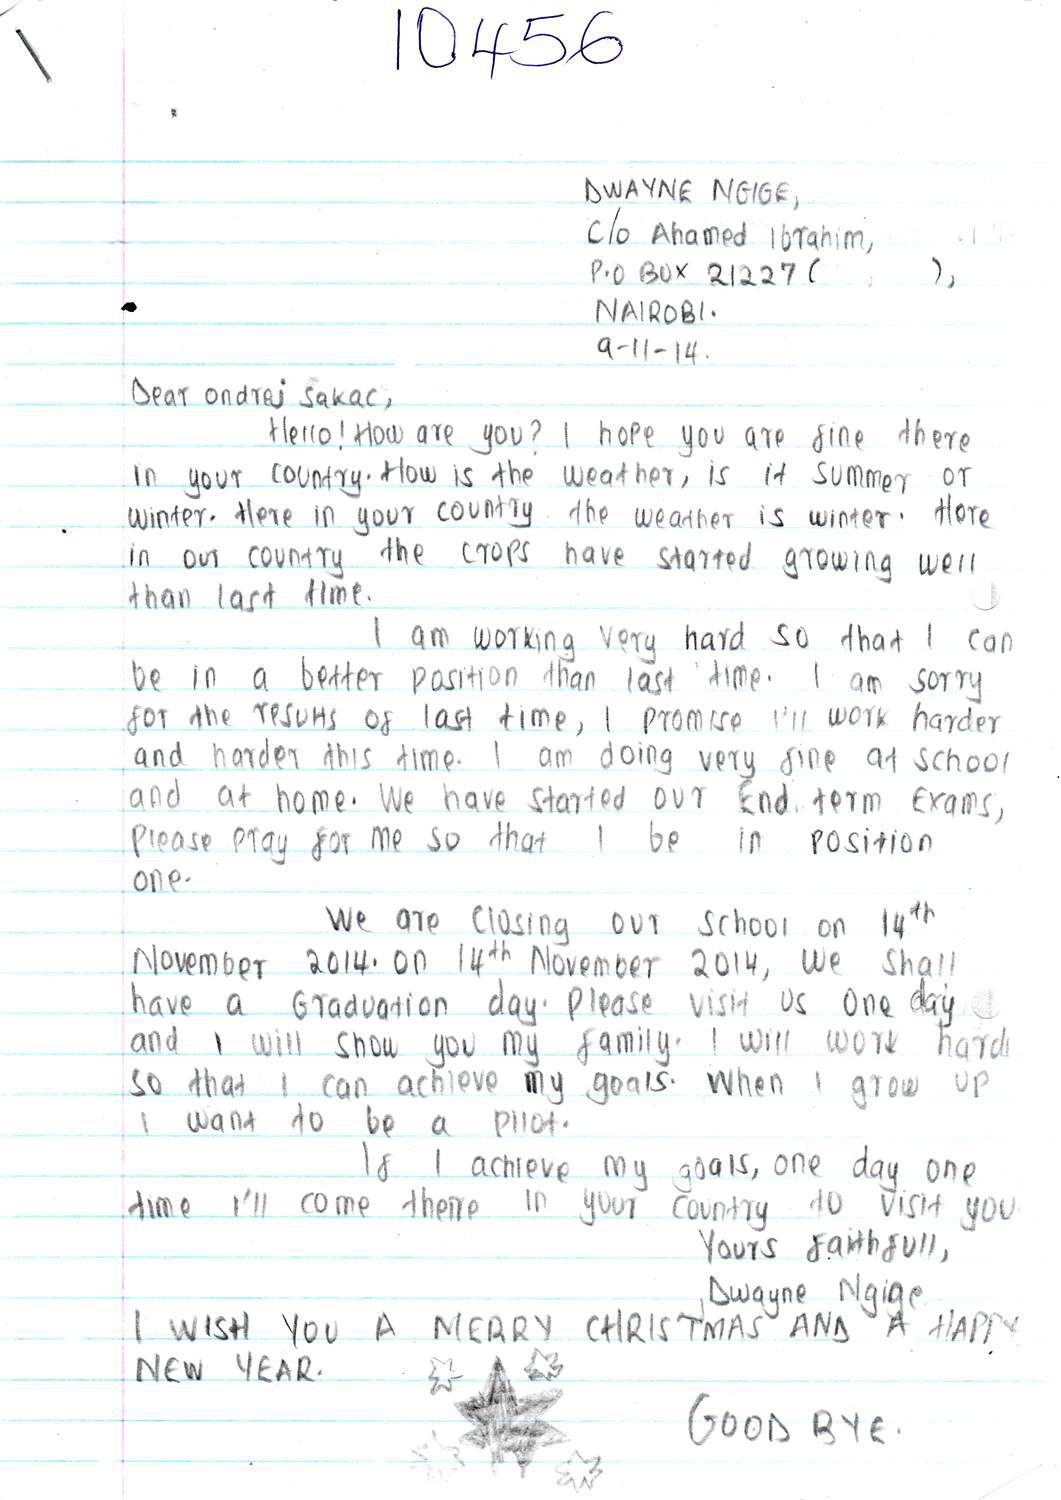 10456
DWAYNE NGIGE,
C/o Ahamed Ibrahim,
P.O BOX 21227 ( ),
NAIROBI.
9-11-14.
Dear ondrej sakac,
Hello! How are you? I hope you are fine there
in your country. How is the weather, is it summer or
winter. Here in your country the weather is winter. Here
in our country the crops have started growing well
than last time.
I am working very hard so that I can
be in a better position than last time. I am sorry
for the results of last time, I promise I'll work harder
and harder this time. I am doing very fine at school
and at home. We have started our End term Exams,
Please pray for me so that I be in position
one.
We are closing our school on 14th
November 2014. on 14th November 2014, we shall
have a Graduation day. Please visit us one day
and I will show you my family. I will work hard
so that I can achieve my goals. When I grow up
I want to be a pilot.
If I achieve my goals, one day one
time I'll come there in your country to visit you
Yours faithfull,
Dwayne Ngige
I WISH YOU A MERRY CHRISTMAS AND A HAPPY
NEW YEAR.
GOOD BYE.